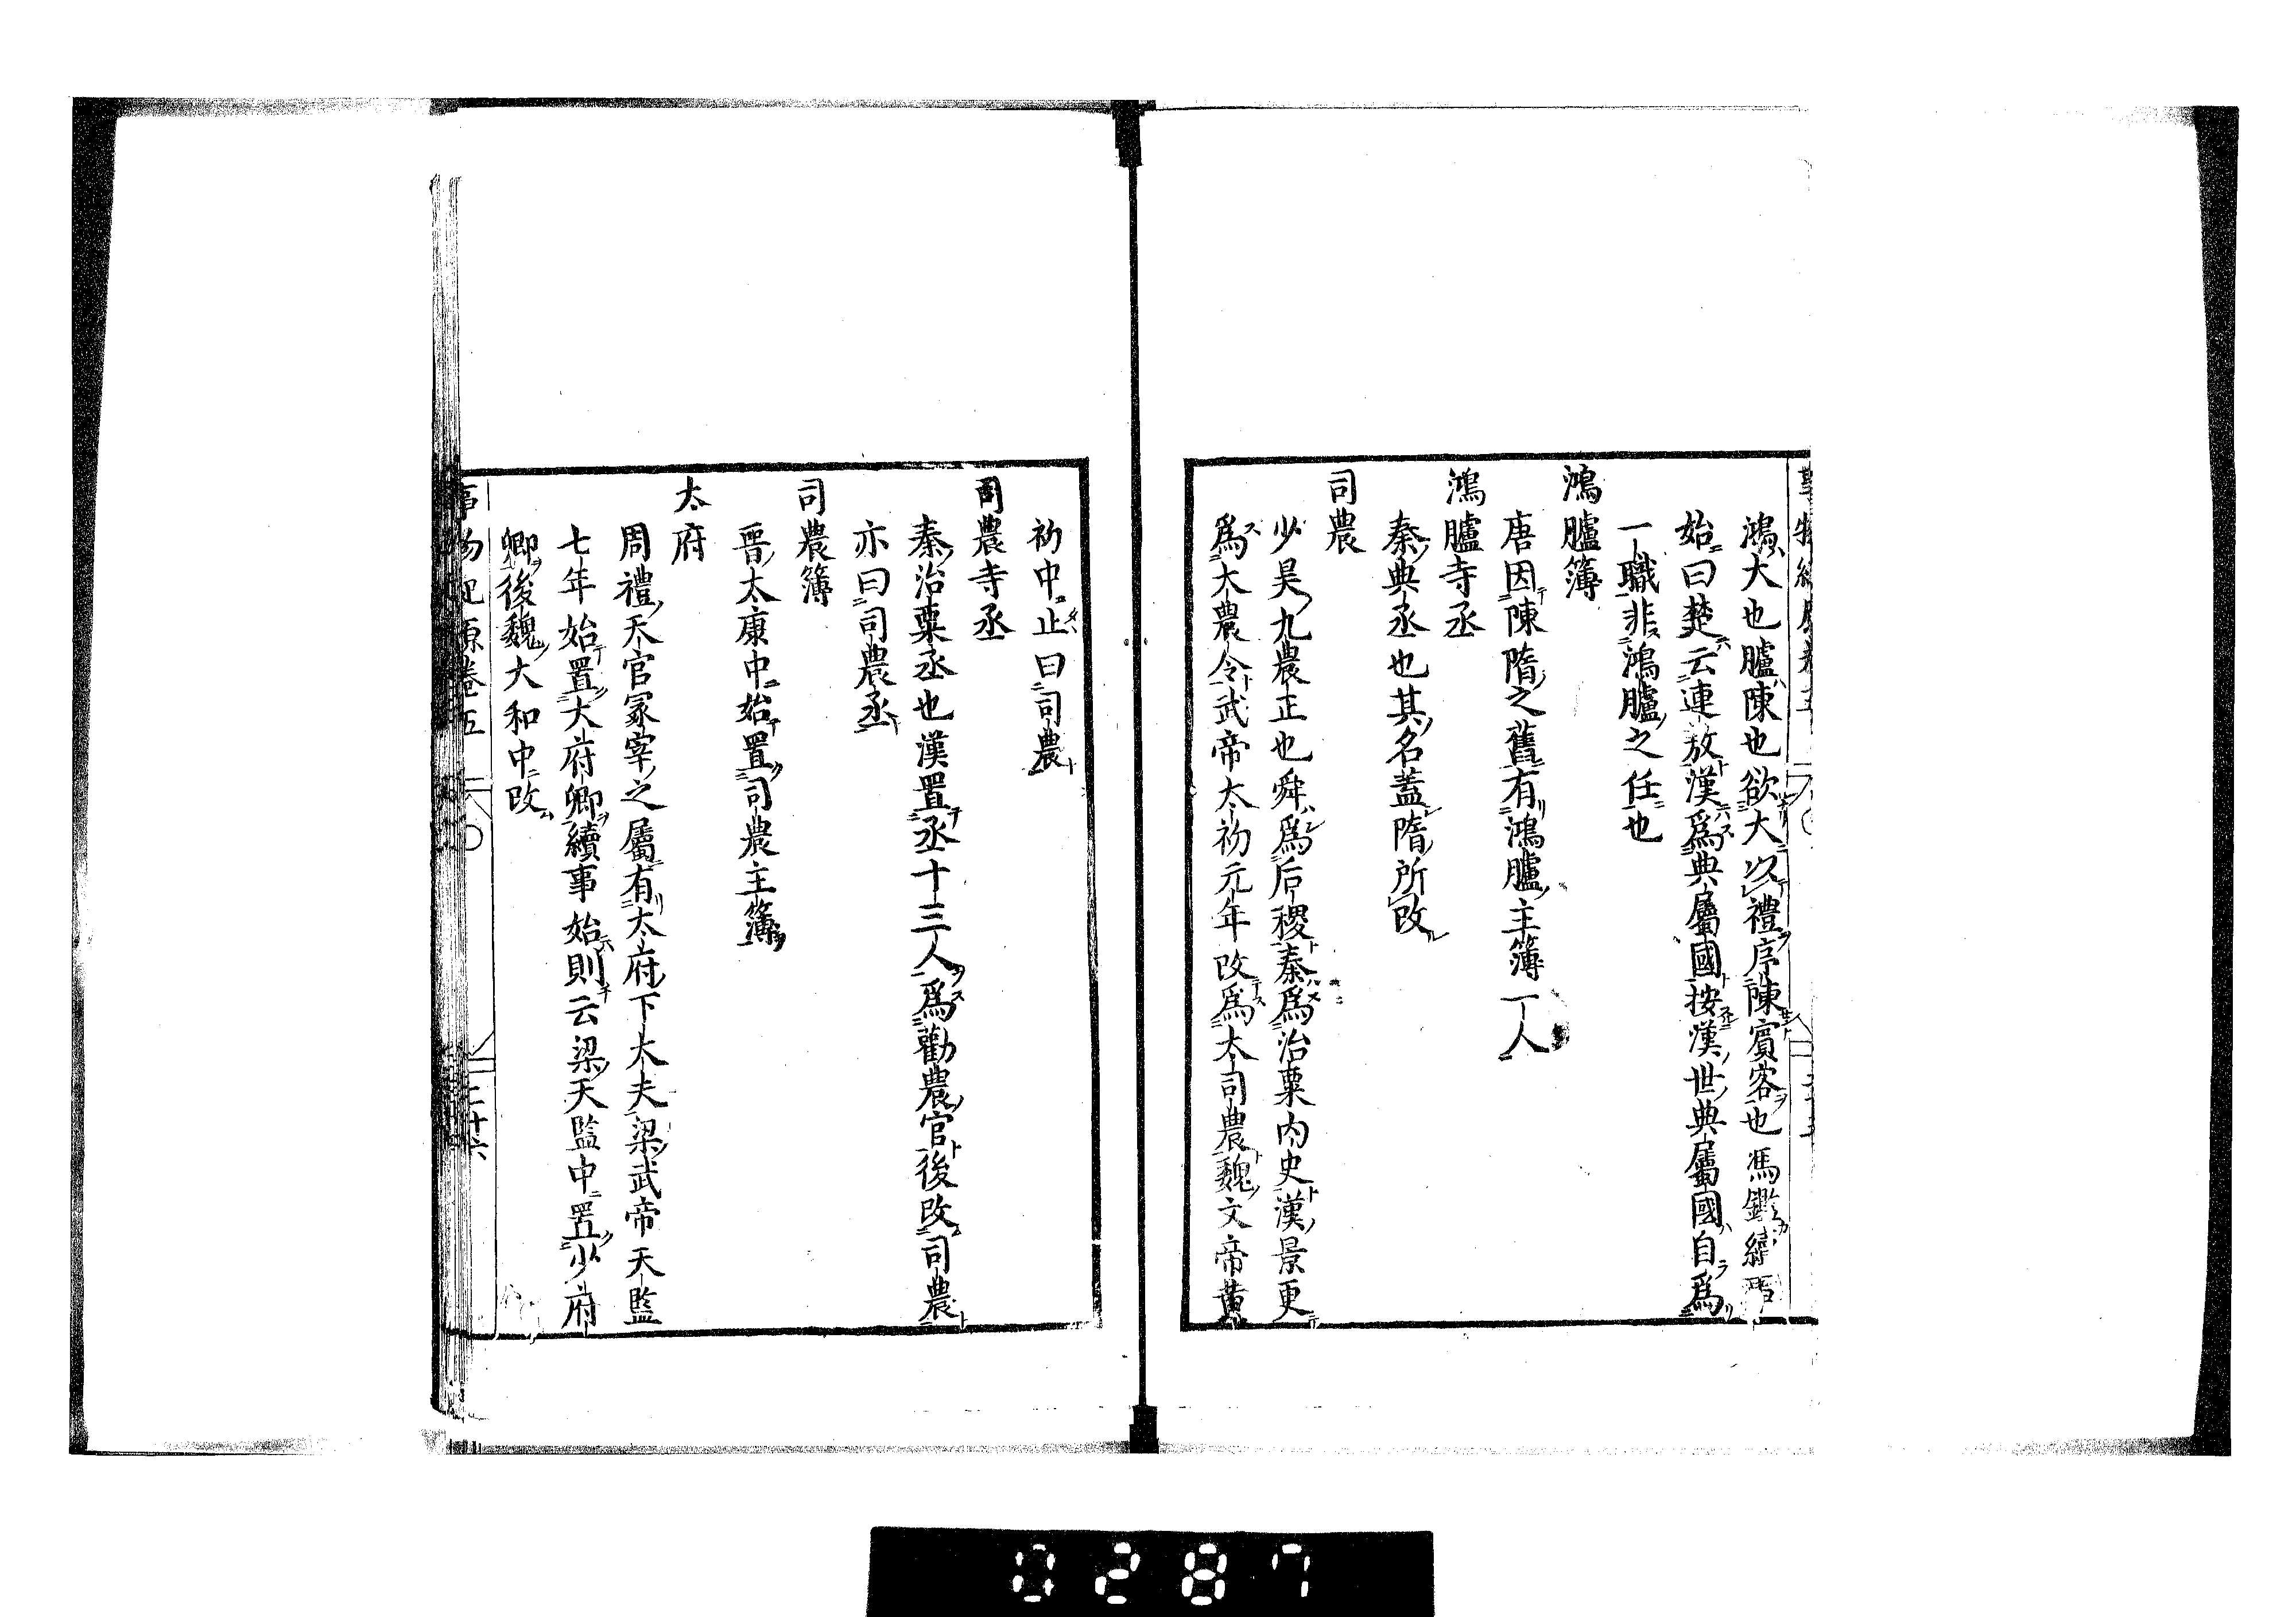 鴻大也臚陳也欲大以禮序陳賓客也馮鑑續事
始曰楚云連敖漢爲典屬國按漢世典屬國自爲
一職非鴻臚之任也
鴻臚簿
唐因陳隋之舊有鴻臚主簿一人
鴻臚寺丞
秦典丞也其名蓋隋所改
司農
少昊九農正也舜爲后稷秦爲治粟内史漢景更
爲大農令武帝太初元年改爲大司農魏文帝黄
初中止曰司農
司農寺丞
秦治粟丞也漢置丞十三人爲勸農官後改司農
亦曰司農丞
司農簿
晉太康中始置司農主簿
太府
周禮天官冢宰之屬有太府下大夫梁武帝天監
七年始置大府卿續事始則云梁天監中置少府
卿後魏大和中改
事物起原卷五
二十六
0287